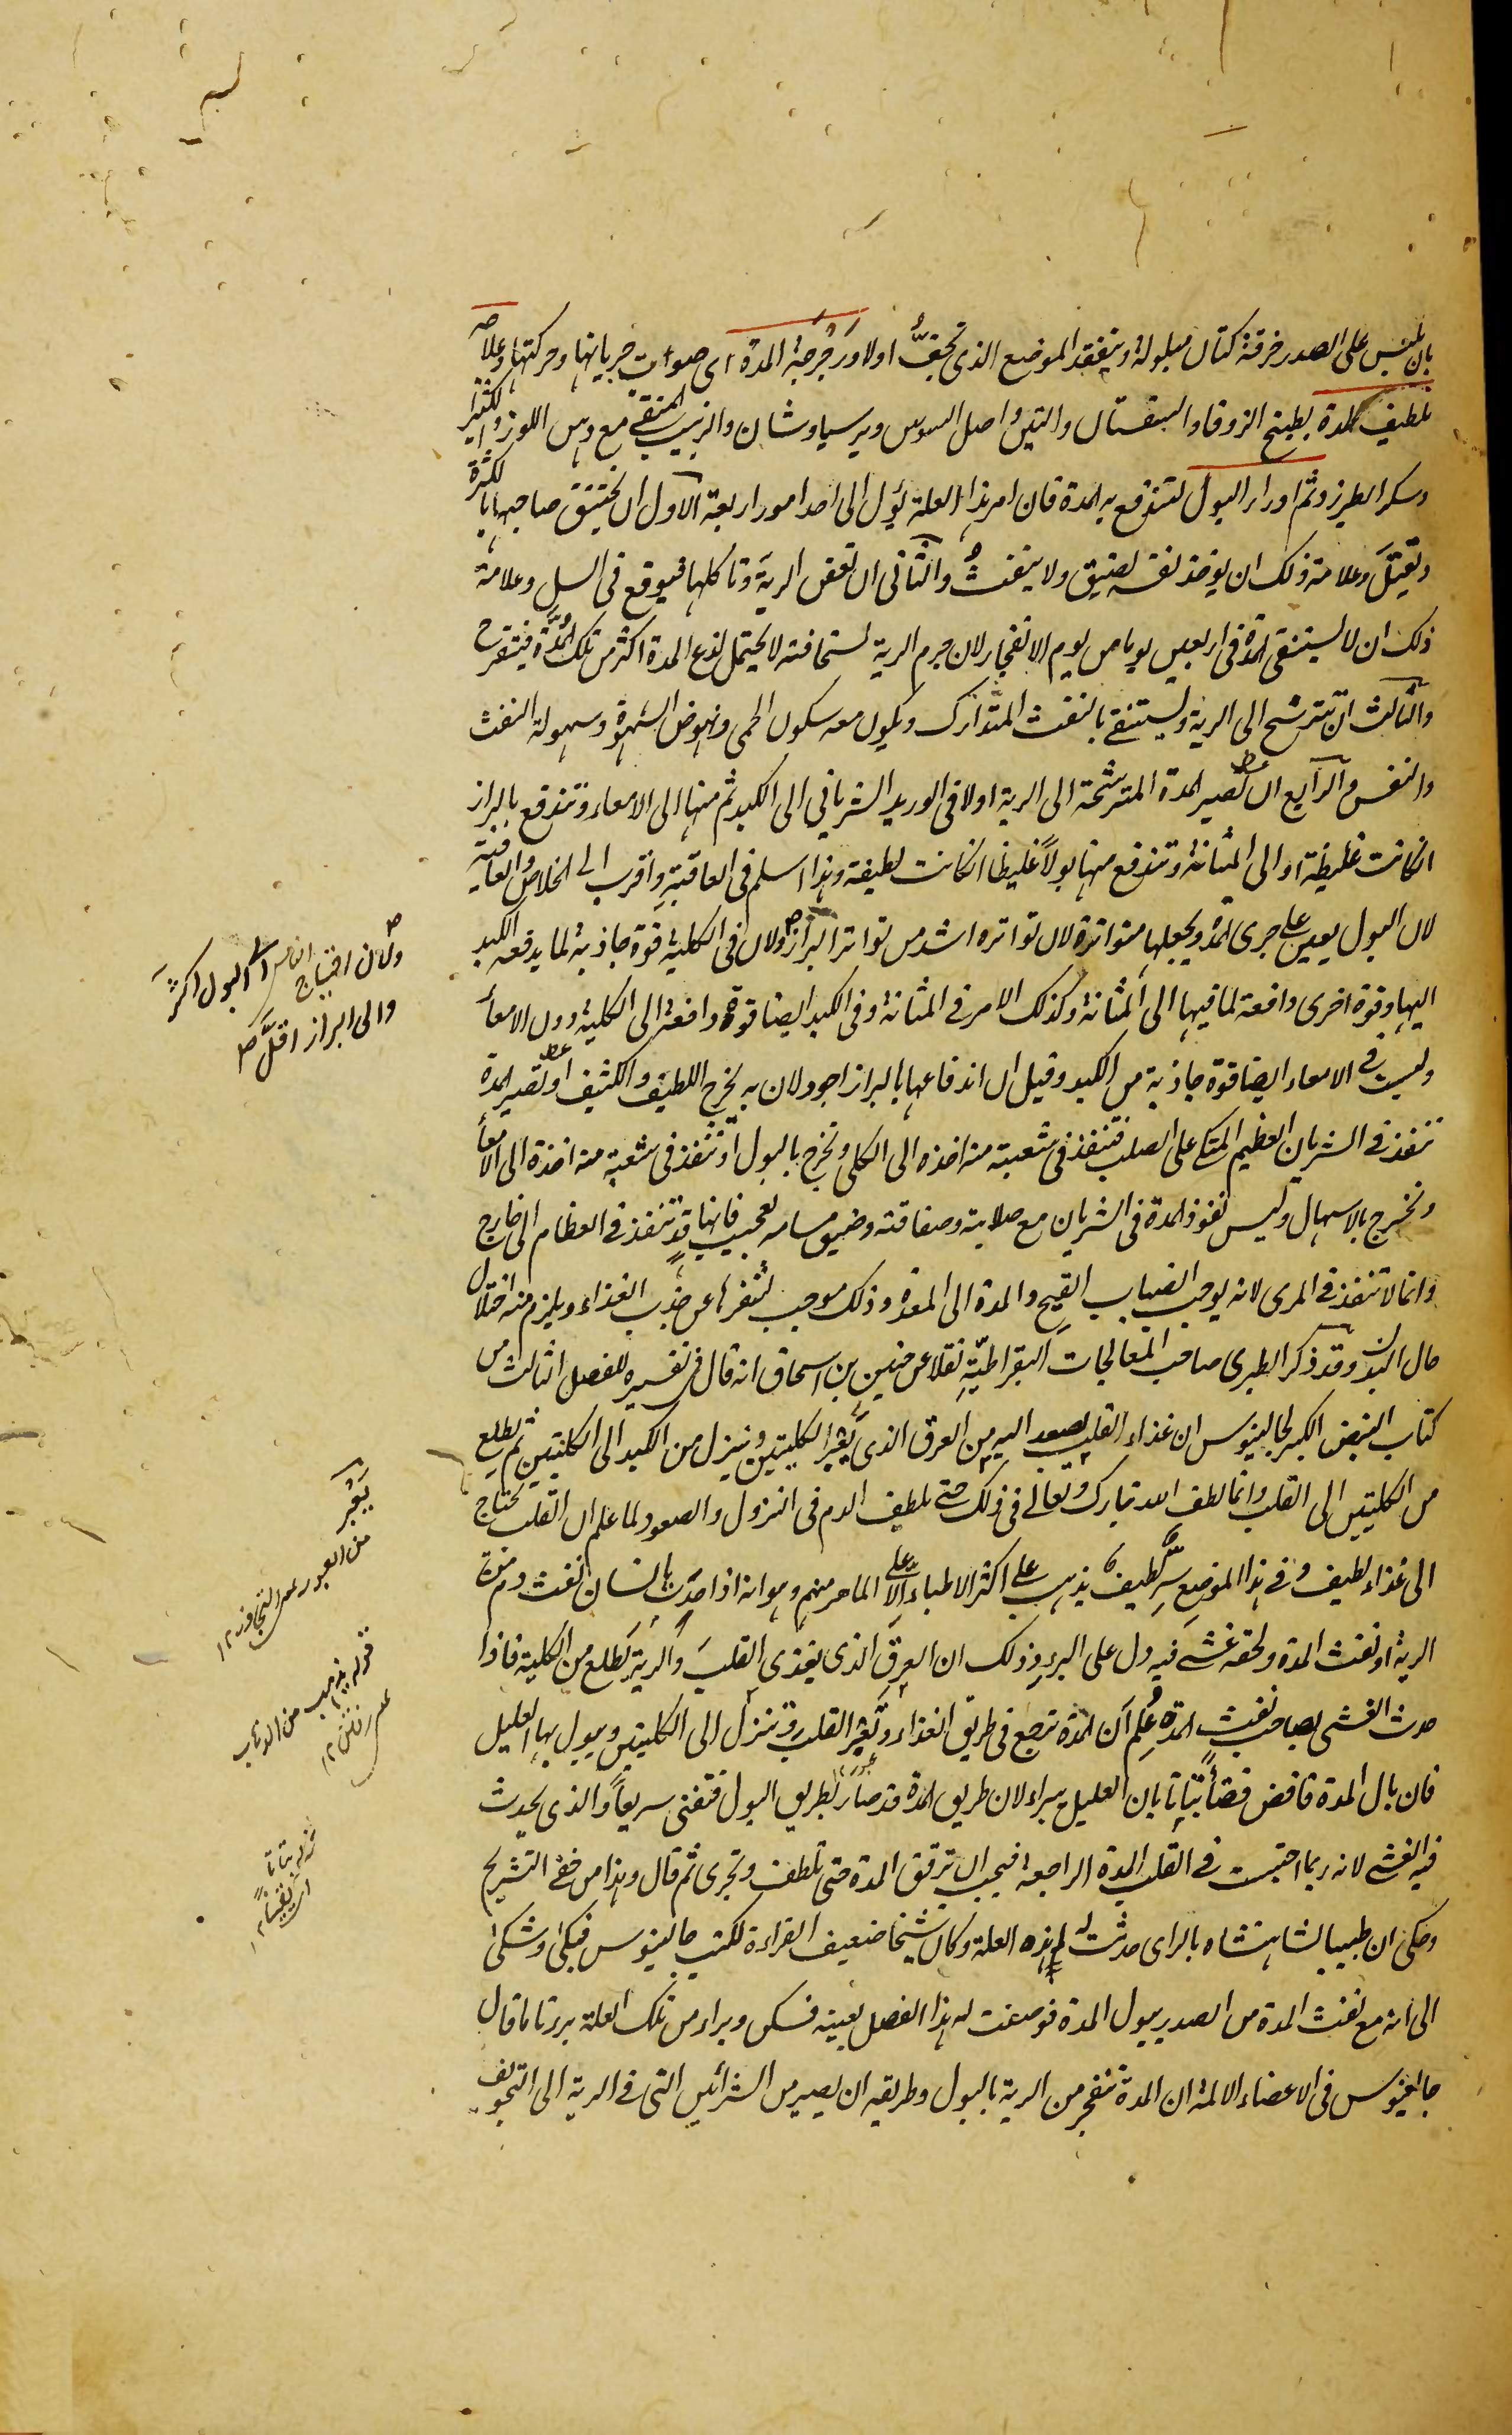 بان يلبس على الصدر خرقة كتان مبلولة ويتفقد الموضع الذى تجفّ اولا ورَجْرَجة المدة اى صوات جريانها وحركتها وعلاجه
بلطيف المدة بطبيخ الزوفا والسبستان والتين واصل السوس وبرسياوشان والزبيب المنقى مع دهن اللوز والكثيرا
وسكر الطبرزد ثم ادرار البول لتندفع به المدة فان امر هذا العلة يؤل الى احد امور اربعة الاول ان يختنق صاحبها لكثرة
وتقتل وعلامة ذلك ان يوخذ نفسه لضيق ولا ينفث والثانى ان تعفن الرية وتاكلها فيوقع فى السل وعلامة
ذلك ان لا يستنقى المدة فى اربعين يوما من يوم الانفجار لان جرم الرية لسخافته لا يحتمل لذع المدة اكثر من تلك المدّة فيتقرح
والثالث ان تترشح الى الرية ويستنقى بالنفث المتدارك ويكون معه سكون الحمى ونهوض الشهوة وسهولة النفث
والنفس والرابع ان تصير المدة المترشحة الى الرية اولا فى الوريد الشريانى الى الكبد ثم منها الى الامعاء وتندفع بالبراز
انكانت غليظة او الى المثانة وتندفع منها بولا غليظا انكانت لطيفة وهذا اسلم فى العاقبة واقرب الى الخلاص والعافية
لان البول يعين على جرى المدة ويجعلها متواترة لان تواتره اشد من تواتر البراز ولان فى الكلية قوة جاذبة لما يدفعه الكبد
اليها وقوة اخرى دافعة لما فيها الى المثانة وكذلك الامر فى المثانة وفى الكبد ايضا قوة دافعة الى الكلية دون الامعاء
وليست فى الامعاء ايضا قوة جاذبة من الكبد وقيل ان اندفاعها بالبراز اجود لان به يخرج اللطيف والكثيف او تصير المدة
تنفذ فى الشريان العظيم المتكى على الصلب فتنفذ فى شعبة منه اخذه الى الكلى وتخرج بالبول او تنفذ فى شعبة منه اخذة الى الامعاء
وتخرج بالاسهال وليس نفوذ المدة فى الشريان مع صلابته وصفاقته وضيق مسامه بعجيب فانها قد تنفذ فى العظام الى خارج
وانما لا تنفذ فى المرى لانه يوجب انصباب القيح والمدة الى المعدة وذلك موجب لتنفرها عن جذب الغذاء ويلزم منه اختلال
حال البدن وقد ذكر الطبرى صاحب المعالجات البقراطية نقلا عن حنين بن اسحاق انه قال فى تفسيره للفصل الثالث من
كتاب النبض الكبير لجالينوس ان غذاء القلب يصعد اليه من العرق الذى يَعْبُر الكليتين وينزل من الكبد الى الكليتين ثم يطلع
من الكليتين الى القلب وانما لطف الله تبارك وتعالى فى ذلك حتى يلطف الدم فى النزول والصعود لما علم ان القلب يحتاج
الى غذاء لطيف وفى هذا الموضع سرّ لطيف يذهب على اكثر الاطباء الا على الماهر منهم وهو انه اذا حدث بانسان نفث دم من قرحة
الرية او نفث المدة ولحقه غشى فيه دل على البرء وذلك ان العرق الذى يغذى القلب والرية يَطلع من الكلية فاذا
حدث الغشى بصاحب نفث المدة عُلِمَ ان المدة ترجع فى طريق الغذاء وتَعْبُر القلب وتنزل الى الكليتين ويبول بها العليل
فان بال المدة فاقض قضاءً بتاتا بان العليل يبراء لان طريق المدة قد صار بطريق البول فتفنى سريعاً والذى يحدث
فيه الغشى لانه ربما احتبست فى القلب المدة الراجعة فيجب ان ترقق المدة حتى تلطف وتجرى ثم قال وهذا من خفى التشريح
وحكى ان طبيبا لشاهنشاه بالراى حدثت له هذه العلة وكان شيخا ضعيف القراءة لكتب جالينوس فبكى وشكى
الى انه مع نفث المدة من الصدر يبول المدة فوصفت له هذا الفصل بعينه فسكن وبراء من تلك العلة برءً تاما قال
جالينوس فى الاعضاء الالمة ان المدة تنفجر من الرية بالبول وطريقه ان يصير من الشرائين التى فى الرية الى التجويف
ولان احتياج الناس الى البول اكثر
والى البراز اقلّ
يَعْبُر
من العبور بمعنى التجاوز ١٢
قوله يذهب من الذهاب
قوله بتاتا
اى يقينا ١٢